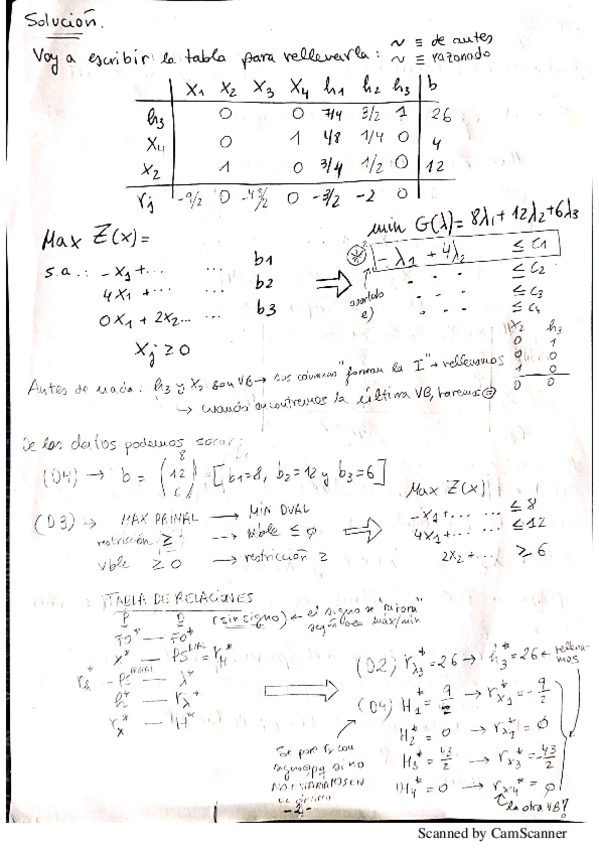 Solución.
Voy a escribir la tabla para rellenarla: ~ ≡ de antes
~ ≡ razonado
X1 X2 X3 X4 h1 h2 h3 b
h3 0 0 7/4 3/2 1 26
X4 0 1 1/8 1/4 0 4
X2 1 0 3/4 1/2 0 12
rj -9/2 0 -43/2 0 -3/2 -2 0
Max Z(x)=
s.a.: -X1+... ... b1
4X1 + ... ... b2
0X1 + 2X2... ... b3
Xj ≥ 0
min G(λ)= 8λ1+12λ2+6λ3
-λ1 + 4λ2 ≤ C1
- - - ≤ C2
- - - ≤ C3
≤ C4
apartado
e)
X2 h3
0 1
0 0
1 0
0 0
Antes de nada: h3 y X2 son VB → sus columnas "forman la I" → rellenamos
↳ cuando encontremos la última VB, haremos =
De los datos podemos sacar:
(D4) → b = (8 12 6) = [b1=8, b2=12 y b3=6]
(D3) → MAX PRIMAL → MIN DUAL
restricción ≥ --→ vble ≤ 0
vble ≥ 0 → restricción ≥
Max Z(x)
-X1+... ... ≤ 8
4X1+... ... ≤ 12
2X2+... ≥ 6
TABLA DE RELACIONES
P D (sin signo) ← el signo se "razona"
según sea máx/min
FO* — FO*
X* — PS DUAL = rH*
rλ* = PS PRIMAL — λ*
h* — rλ*
rx* — H*
(D2) rλ3* = 26 → h3* = 26 ← rellenamos
(D4) H1* = 9/2 → rx1* = -9/2
H2* = 0 → rx2* = 0
H3* = 43/2 → rx3* = -43/2
H4* = 0 → rx4* = 0
¿la otra VB?
-2-
Scanned by CamScanner